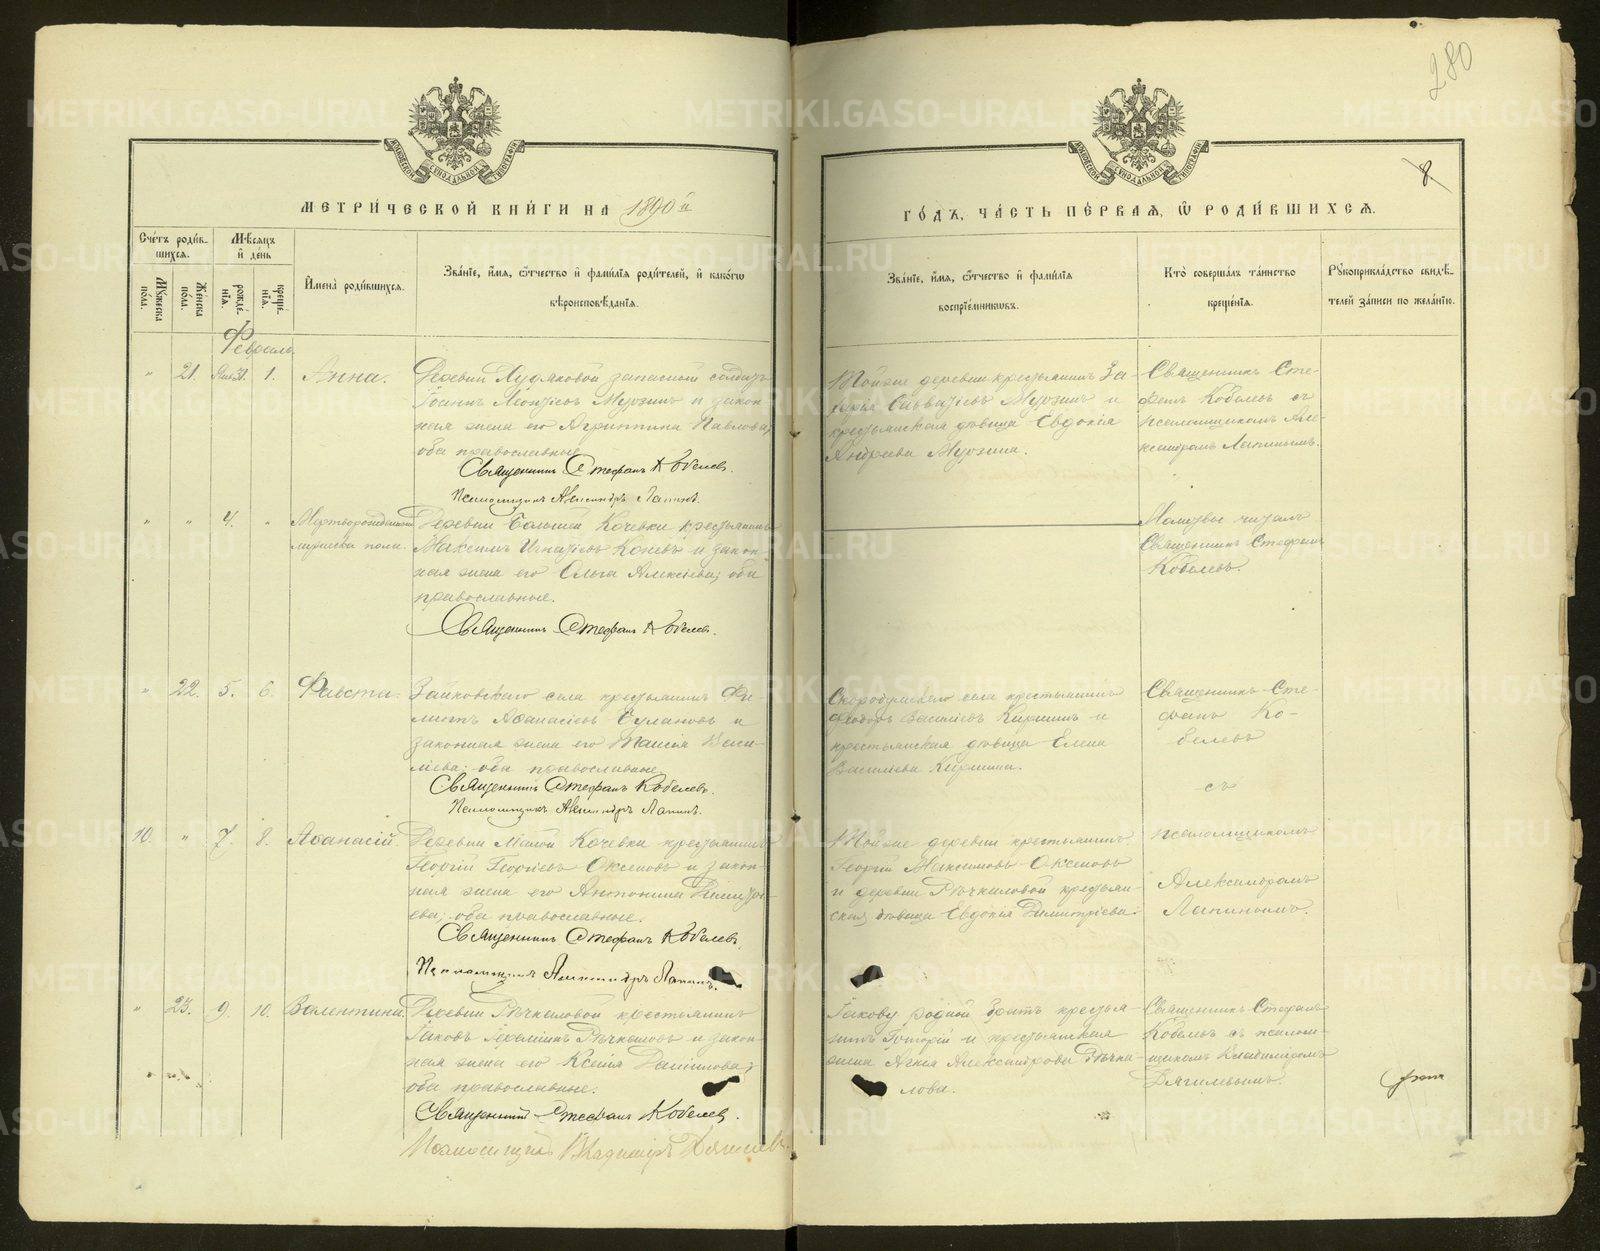 280
8
МЕТРИЧЕСКОЙ КНИГИ НА 1890 й
ГОДЪ, ЧАСТЬ ПЕРВАЯ, Ѡ РОДИВШИХСЯ.
Счетъ родившихся.
Мужеска пола.
Женска пола.
Мѣсяцъ и день
рожденія.
крещенія.
Имена родившихся.
Званіе, имя, ѻтчество и фамилія родителей, и какогѡ
вѣроисповѣданія.
Званіе, имя, ѻтчество и фамилія
воспріемникѡвъ.
Кто совершалъ таинство
крещенія.
Рꙋкоприкладство свидѣ-
телей записи по желанію.
Февраль
" 21. Янв 31. 1. Анна.
Деревни Худяковой запасной солдатъ
Іоаннъ Леонтіевъ Мурзинъ и закон-
ная жена его Агриппина Павлова,
оба православные
Священникъ Стефанъ Кобелевъ.
Псаломщикъ Александръ Лапинъ.
Тойже деревни крестьянинъ За-
харъ Савватіевъ Мурзинъ и
крестьянская дѣвица Евдокія
Андреева Мурзина.
Священникъ Сте-
фанъ Кобелевъ съ
псаломщикомъ Але-
ксандромъ Лапинымъ.
" " 4. " Мертворожденный
мужеска пола.
Деревни Большой Кочевки крестьянинъ
Максимъ Игнатіевъ Коневъ и закон-
ная жена его Ольга Алексіева; оба
православные.
Священникъ Стефанъ Кобелевъ.
Молитвы читалъ
Священникъ Стефанъ
Кобелевъ.
" 22. 5. 6. Фавста.
Зайковскаго села крестьянинъ Фи-
липпъ Аѳанасіевъ Сулановъ и
законная жена его Таисія Васи-
ліева; оба православные
Священникъ Стефанъ Кобелевъ.
Псаломщикъ Александръ Лапинъ.
Скоробумскаго села крестьянинъ
Ѳеодоръ Василіевъ Киришинъ и
крестьянская дѣвица Елена
Василіева Киришина.
Священникъ Сте-
фанъ Ко-
белевъ
съ
псаломщикомъ
Александромъ
Лапинымъ.
10. " 7. 8. Аѳанасій.
Деревни Малой Кочевки крестьянинъ
Георгій Георгіевъ Оксеновъ и закон-
ная жена его Антонина Димитрі-
ева; оба православные.
Священникъ Стефанъ Кобелевъ.
Псаломщикъ Александръ Лапинъ.
Тойже деревни крестьянинъ
Георгій Максимовъ Оксеновъ
и деревни Рѣчкаловой крестьян-
ская дѣвица Евдокія Димитріева.
" 23. 9. 10. Валентина.
Деревни Рѣчкаловой крестьянинъ
Іаковъ Герасимовъ Рѣчкаловъ и закон-
ная жена его Ксенія Даніилова;
оба православные.
Священникъ Стефанъ Кобелевъ.
Псаломщикъ Владиміръ Дягилевъ.
Іакову родной братъ крестья-
нинъ Григорій и крестьянская
жена Агнія Александрова Рѣчка-
лова.
Священникъ Стефанъ
Кобелевъ съ псалом-
щикомъ Владиміромъ
Дягилевымъ.
METRIKI.GASO-URAL.RU